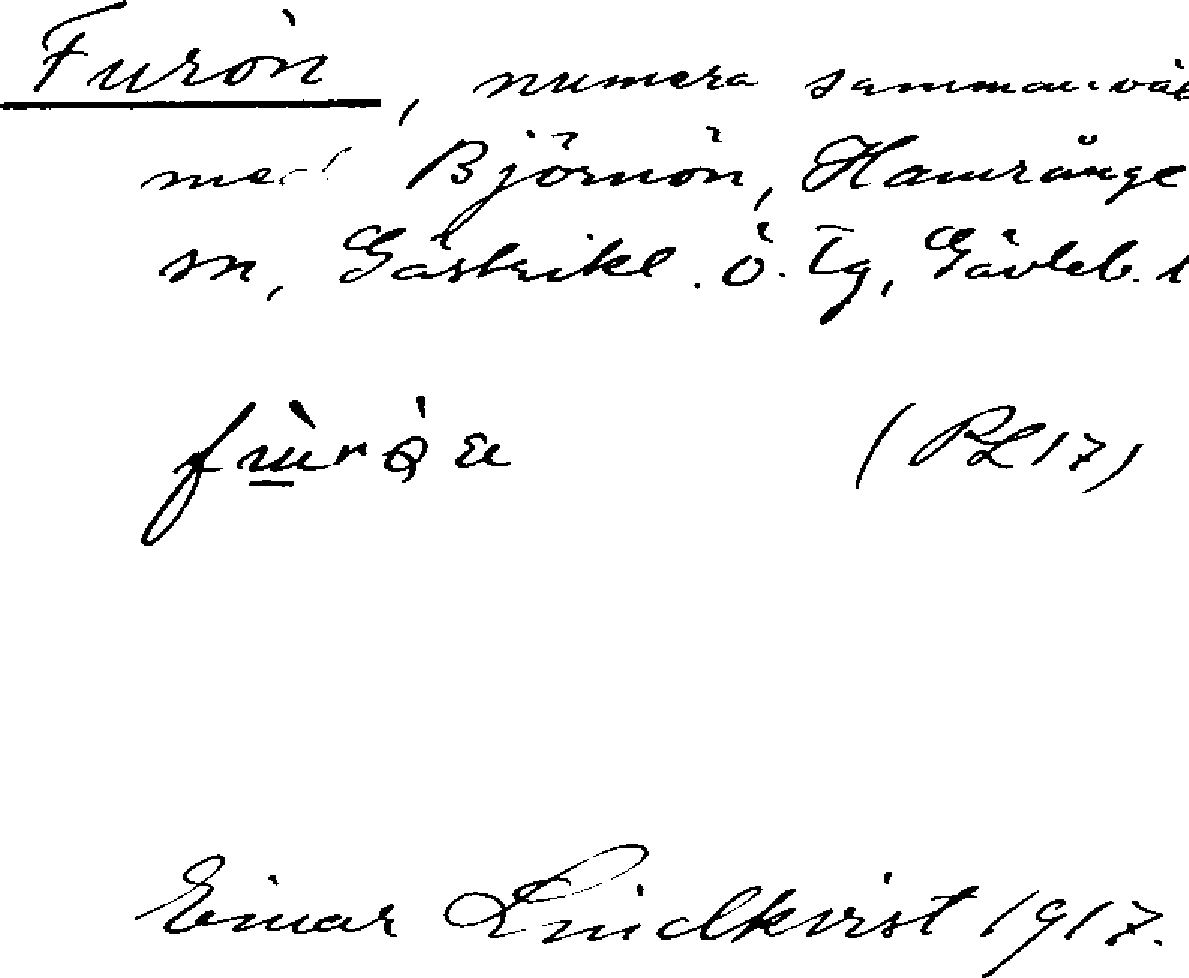 Furön, numera sammanväx
med Björnön, Hamrånge
sn, Gästrikl. ö. Tg, Gävleb. l
(RL 17)
Einar Lindkvist 1917.